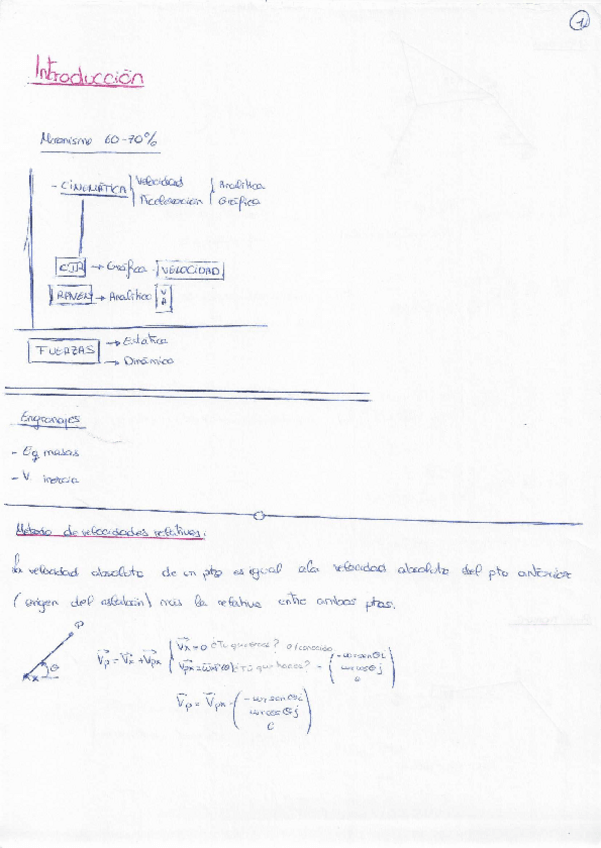 1
Introducción
Mecanismo 60-70%
- CINEMÁTICA { Velocidad { Analítica
Aceleración Gráfica
CIR → Gráfica - VELOCIDAD
RAVEN → Analítico V A
FUERZAS → Estática
→ Dinámica
Engranajes
- Eq. masas
- V. inercia
Método de velocidades relativas:
la velocidad absoluta de un pto es igual a la velocidad absoluta del pto anterior
(origen del eslabón) más la relativa entre ambos ptos.
P
θ
x
Vp = Vx + Vpx { Vx = 0 ¿Tu que eres? 0/conocido
Vpx = ω x r ¿Tu que haces? - ( -ωr senθ i
ωr cosθ j
0 )
Vp = Vpx - ( -ωr senθ i
ωr cosθ j
0 )